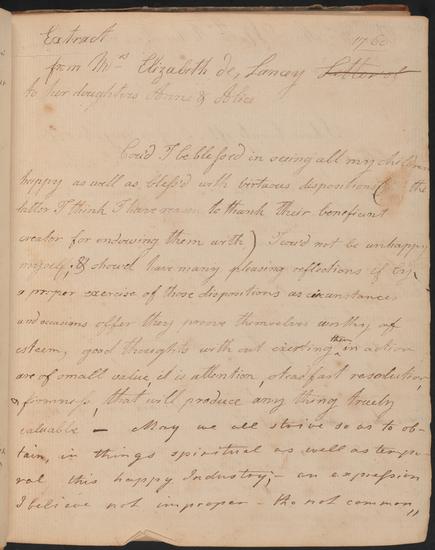 Extract 1760
from Mrs Elizabeth de, Lancey Letter of
to her doughters Anne & Alice
Cou'd I be bless'd in seeing all my children
happy as well as bless'd with virtuous dispositions ( the
latter I think I have reason to thank their beneficent
creator for endowing them with) I cou'd not be unhappy
myself, & shoud have many pleasing reflections if by
a proper exercise of those dispositions as circumstances
and occasions offer they prove themselves worthy of
esteem, good thoughts with out exerting them in action
are of small value, it is attention, steadfast resolution,
& firmness, that will produce any thing truely
valuable — May we all strive so as to ob-
tain, in things spiritual as well as tempo-
ral this happy Industry, — an expression
I believe not improper - tho not common,,